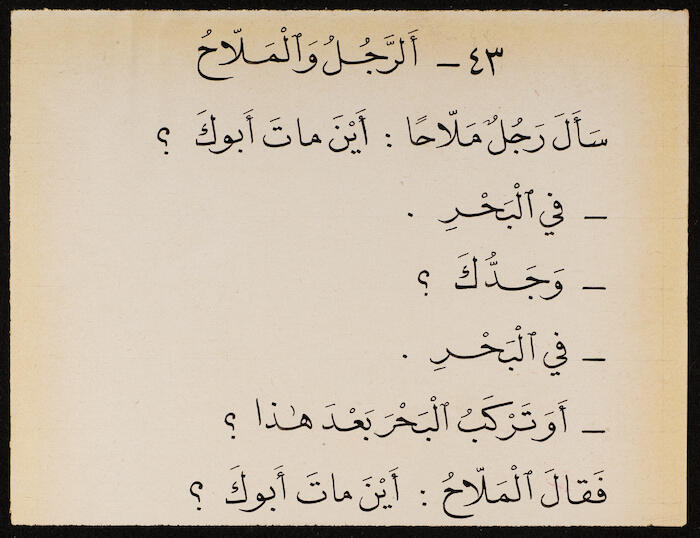 ٤٣ – أَلرَّجُلُ وَٱلْمَلّاحُ
سَأَلَ رَجُلٌ مَلّاحًا : أَيْنَ ماتَ أَبوكَ ؟
– في ٱلْبَحْرِ .
– وَجَدُّكَ ؟
– في ٱلْبَحْرِ .
– أَوَ تَرْكَبُ ٱلْبَحْرَ بَعْدَ هٰذا ؟
فَقالَ ٱلْمَلّاحُ : أَيْنَ ماتَ أَبوكَ ؟